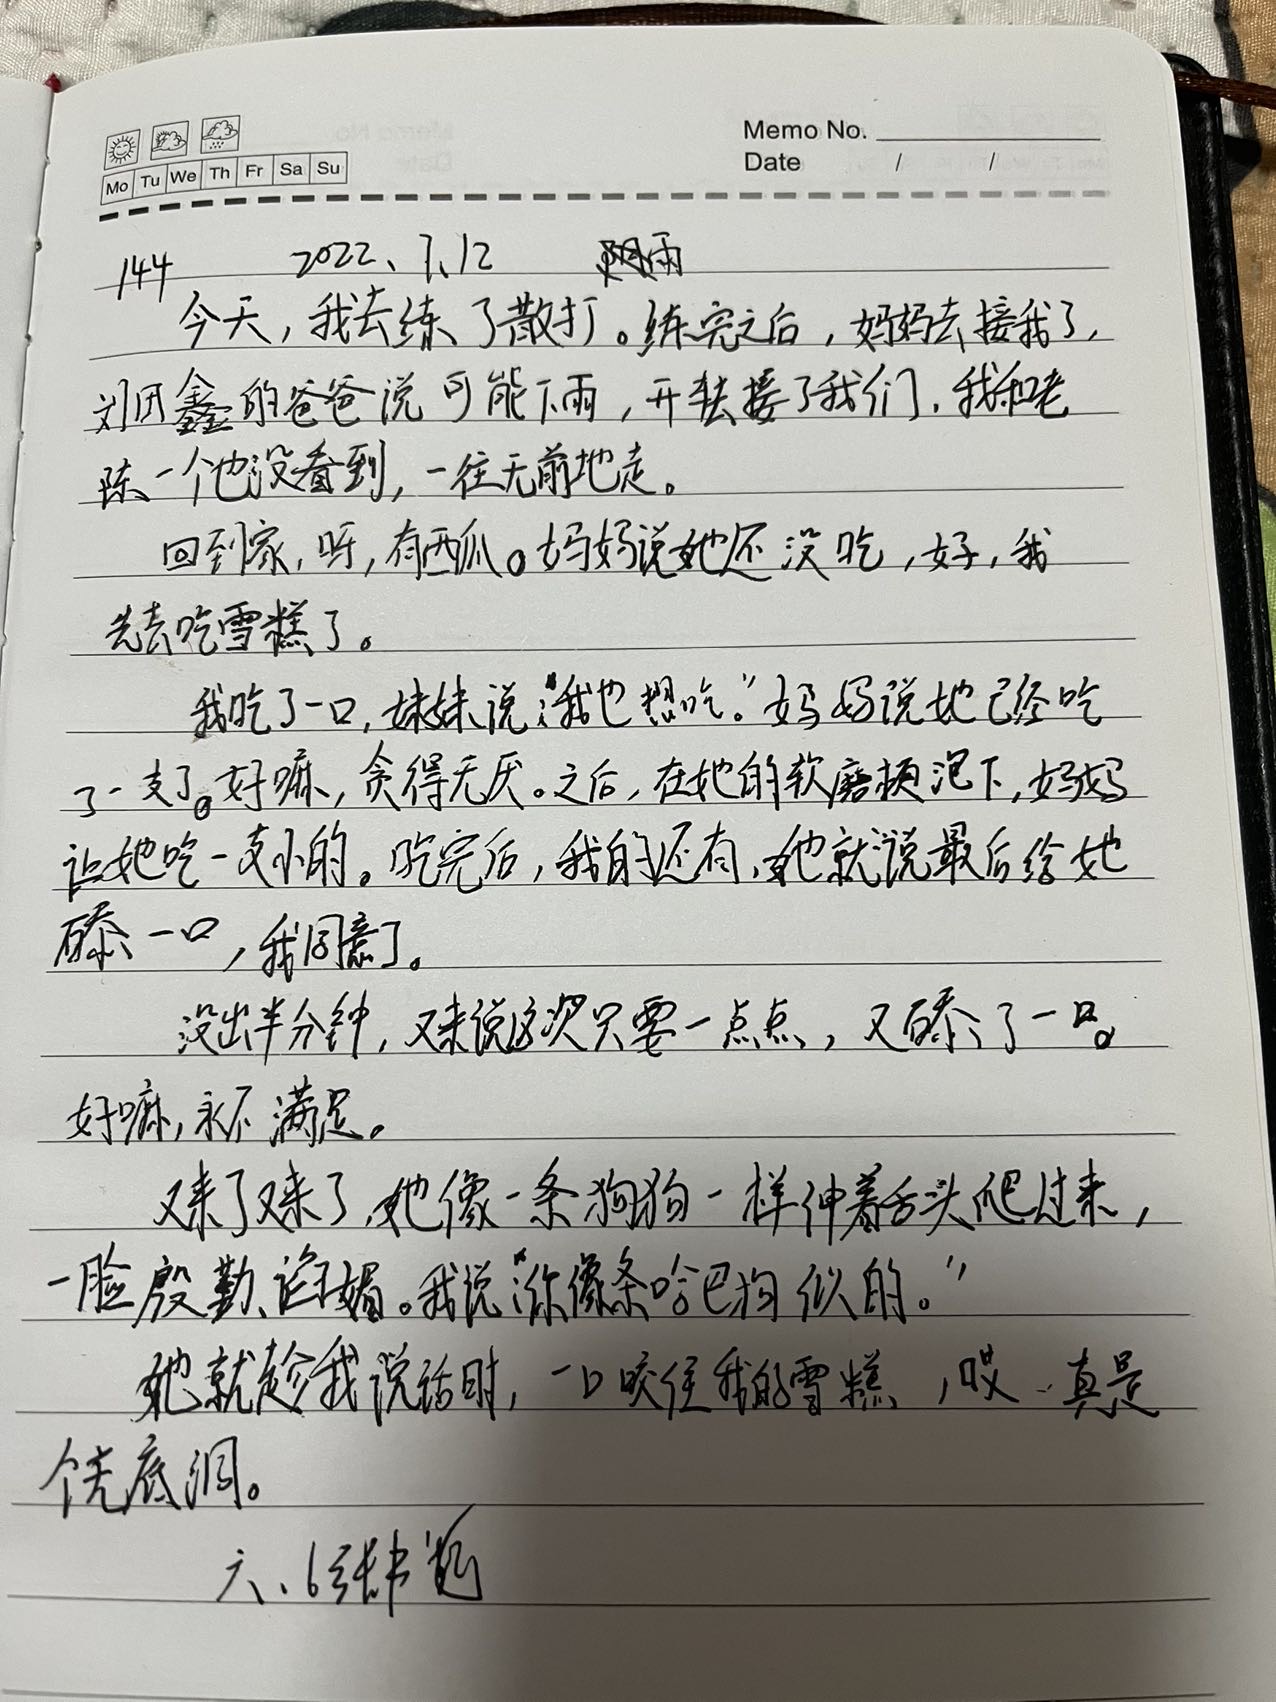 Memo No.
Mo Tu We Th Fr Sa Su
Date / /
144 2022、7、12 雨
今天，我去练了散打。练完之后，妈妈去接我了，
刘历鑫的爸爸说可能下雨，开车去接了我们，我和老
陈一个也没看到，一往无前地走。
回到家，呀，有西瓜。妈妈说她还没吃，好，我
先去吃雪糕了。
我吃了一口，妹妹说：“我也想吃。”妈妈说她已经吃
了一支了。好嘛，贪得无厌。之后，在她的软磨硬泡下，妈妈
让她吃一支小的。吃完后，我的还有，她就说最后给她
舔一口，我同意了。
没出半分钟，又来说这次只要一点点，又舔了一口。
好嘛，永不满足。
又来了又来了，她像一条狗狗一样伸着舌头爬过来，
一脸殷勤、谄媚。我说：“你像条哈巴狗似的。”
她就趁我说话时，一口咬住我的雪糕，哎，真是
个无底洞。
六、6 张